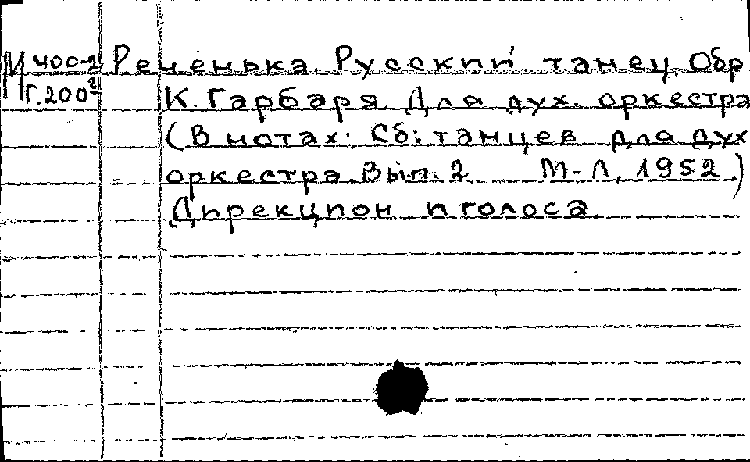 М 400-2 Реченька. Русский танец. Обр.
Г.200² К. Гарбаря. Для дух. оркестра
(В нотах: Сб: танцев для дух
оркестра. Вып. 2 М-Л, 1952.)
Дирекцион и голоса.